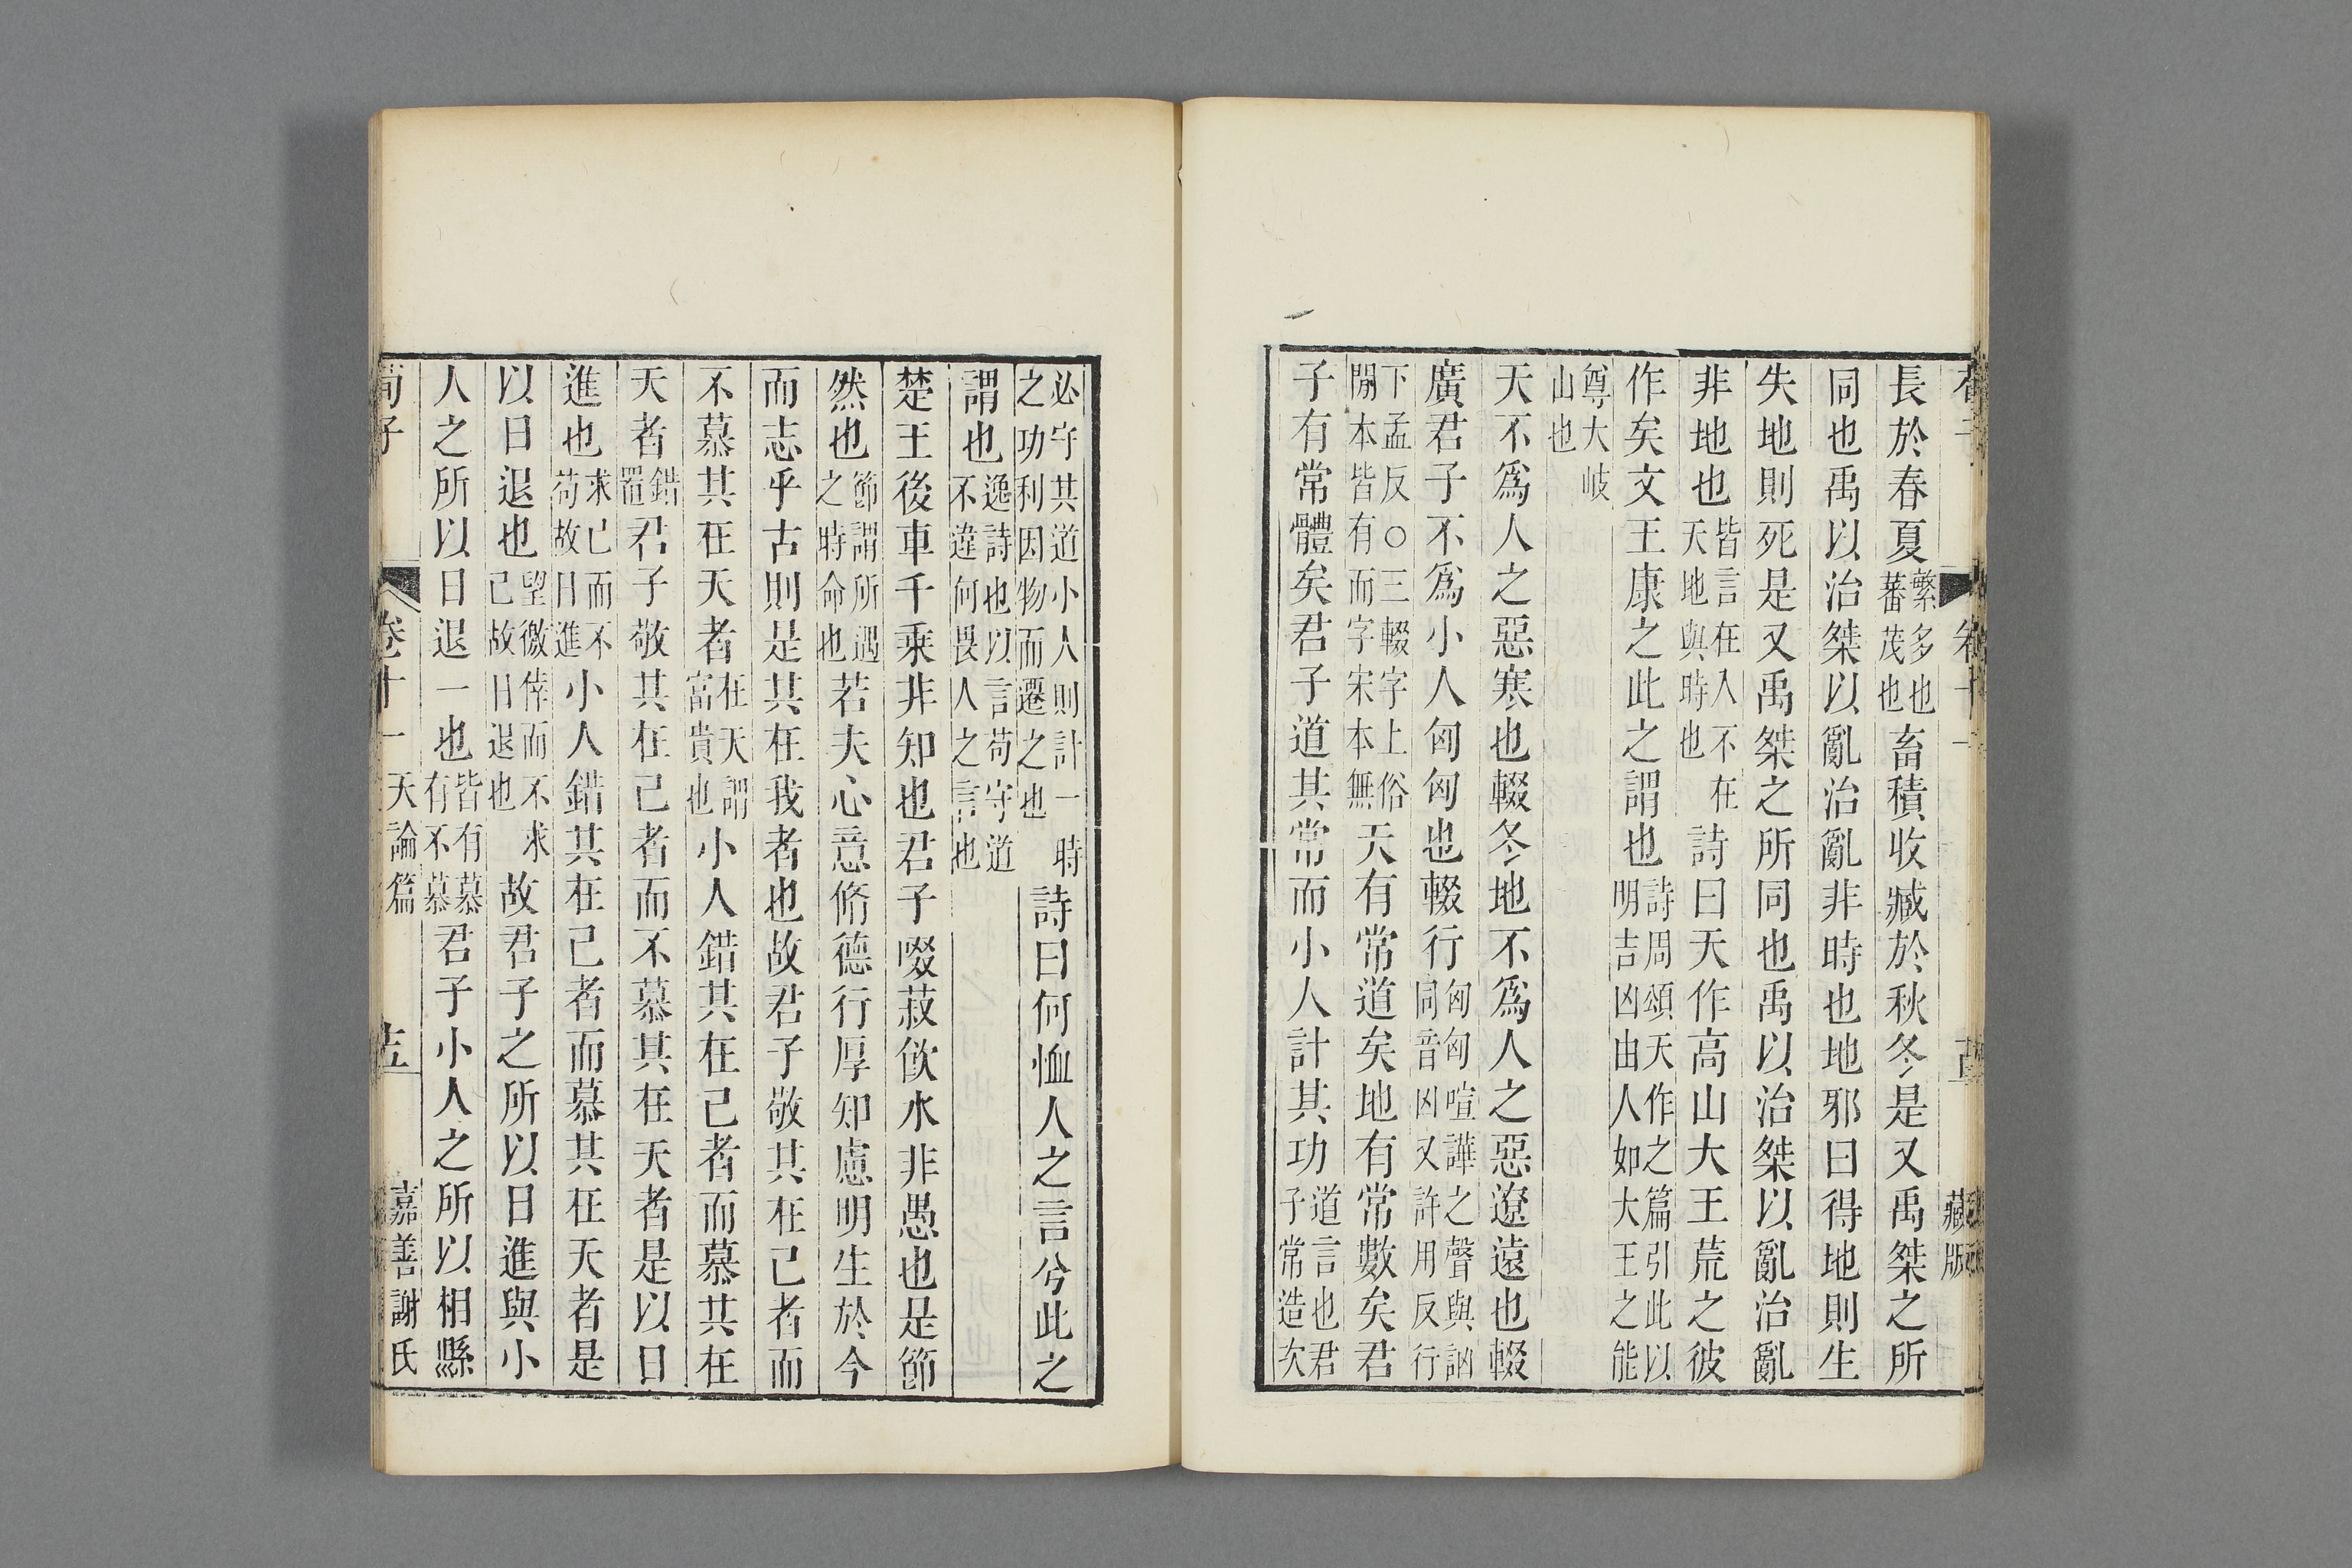 長於春夏繁多也蕃茂也畜積收臧於秋冬是又禹桀之所
同也禹以治桀以亂治亂非時也地邪曰得地則生
失地則死是又禹桀之所同也禹以治桀以亂治亂
非地也皆言在人不在天地與時也詩曰天作高山大王荒之彼
作矣文王康之此之謂也詩周頌天作之篇引此以明吉凶由人如大王之能
尊大岐山也
天不爲人之惡寒也輟冬地不爲人之惡遼遠也輟
廣君子不爲小人匈匈也輟行匈匈喧譁之聲與訩同音凶又許用反行
下孟反○三輟字上俗閒本皆有而字宋本無天有常道矣地有常數矣君
子有常體矣君子道其常而小人計其功道言也君子常造次
必守其道小人則計一時之功利因物而遷之也詩曰何恤人之言兮此之
謂也逸詩也以言苟守道不違何畏人之言也
楚王後車千乘非知也君子啜菽飲水非愚也是節
然也節謂所遇之時命也若夫心意脩德行厚知慮明生於今
而志乎古則是其在我者也故君子敬其在己者而
不慕其在天者在天謂富貴也小人錯其在己者而慕其在
天者錯置君子敬其在己者而不慕其在天者是以日
進也求己而不苟故日進小人錯其在己者而慕其在天者是
以日退也望徼倖而不求己故日退也故君子之所以日進與小
人之所以日退一也皆有慕有不慕君子小人之所以相縣
荀子
卷十一
天論篇
嘉善謝氏
藏版